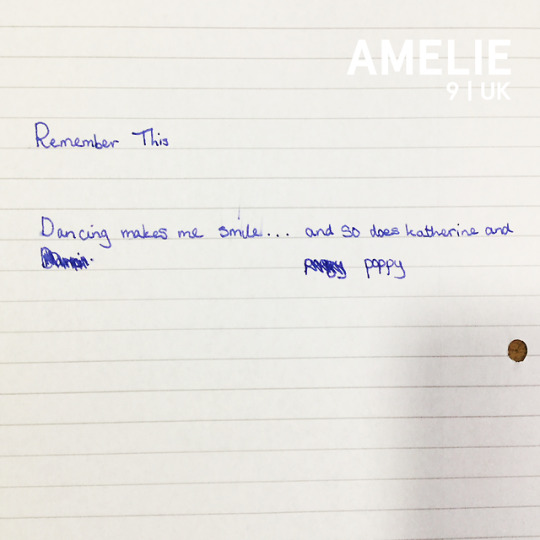 AMELIE
9 | UK
Remember This
Dancing makes me smile... and so does katherine and
poppy